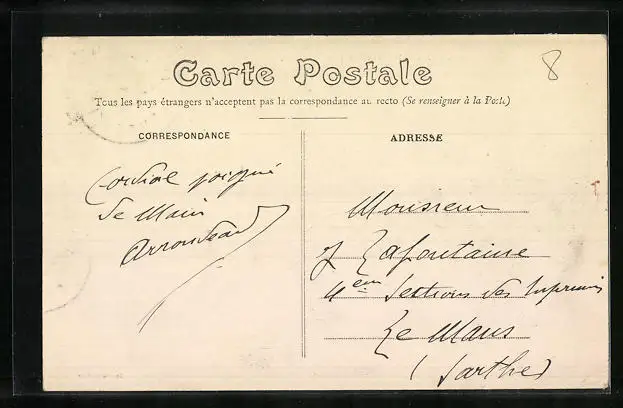 8
Carte Postale
Tous les pays étrangers n'acceptent pas la correspondance au recto (Se renseigner à la Poste)
CORRESPONDANCE
ADRESSE
Cordiale poignée
de Main
Arrondeau
Monsieur
J Lafontaine
4em Sections des
Le Mans
(Sarthe)